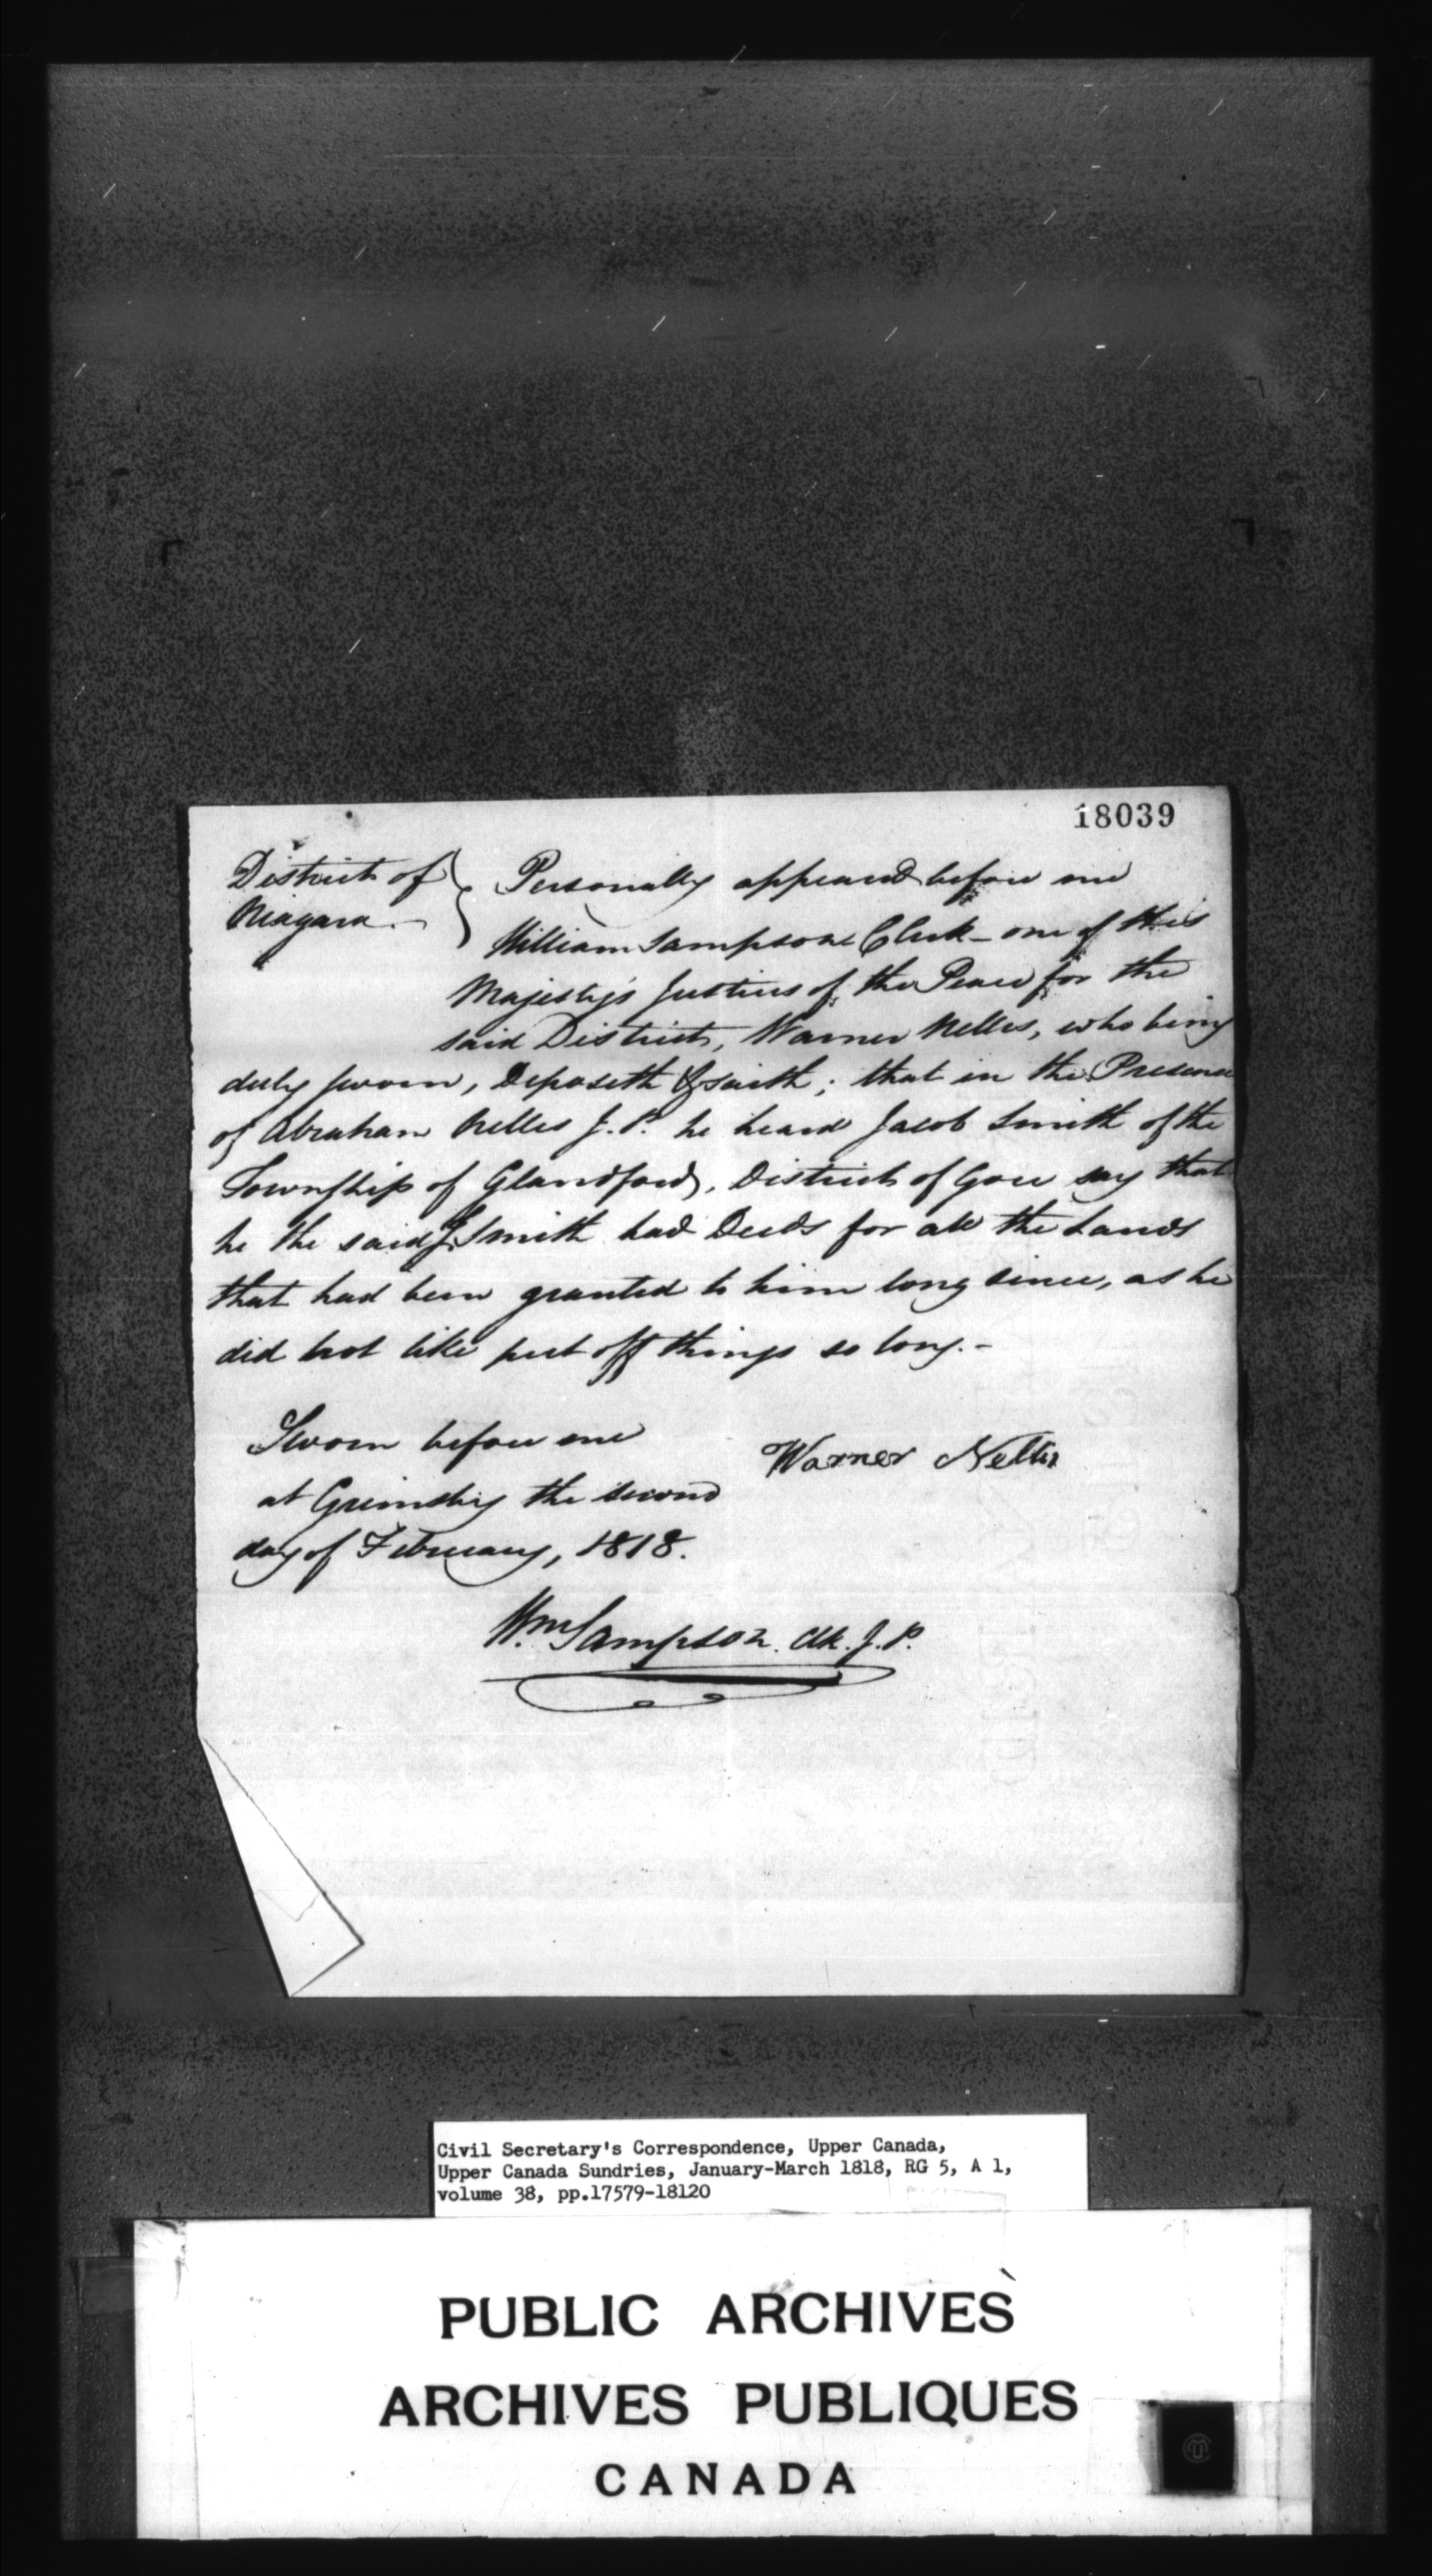 18039
District of } Personally appeared before me
Niagara. William Sampson Clerk - one of His
Majesty's Justices of the Peace for the
said District, Warner Nelles, who being
duly sworn, Deposeth & saith; that in the Presence
of Abraham Nelles J.P. he heard Jacob Smith of the
Township of Glandford, District of Gore say that
he the said J. Smith had Deeds for all the Lands
that had been granted to him long since, as he
did not like put off things so long. -
Sworn before me
Warner Nelles
at Grimsby the second
day of February, 1818.
Wm Sampson. Clk. J. P.
Civil Secretary's Correspondence, Upper Canada,
Upper Canada Sundries, January-March 1818, RG 5, A 1,
volume 38, pp.17579-18120
PUBLIC ARCHIVES
ARCHIVES PUBLIQUES
CANADA